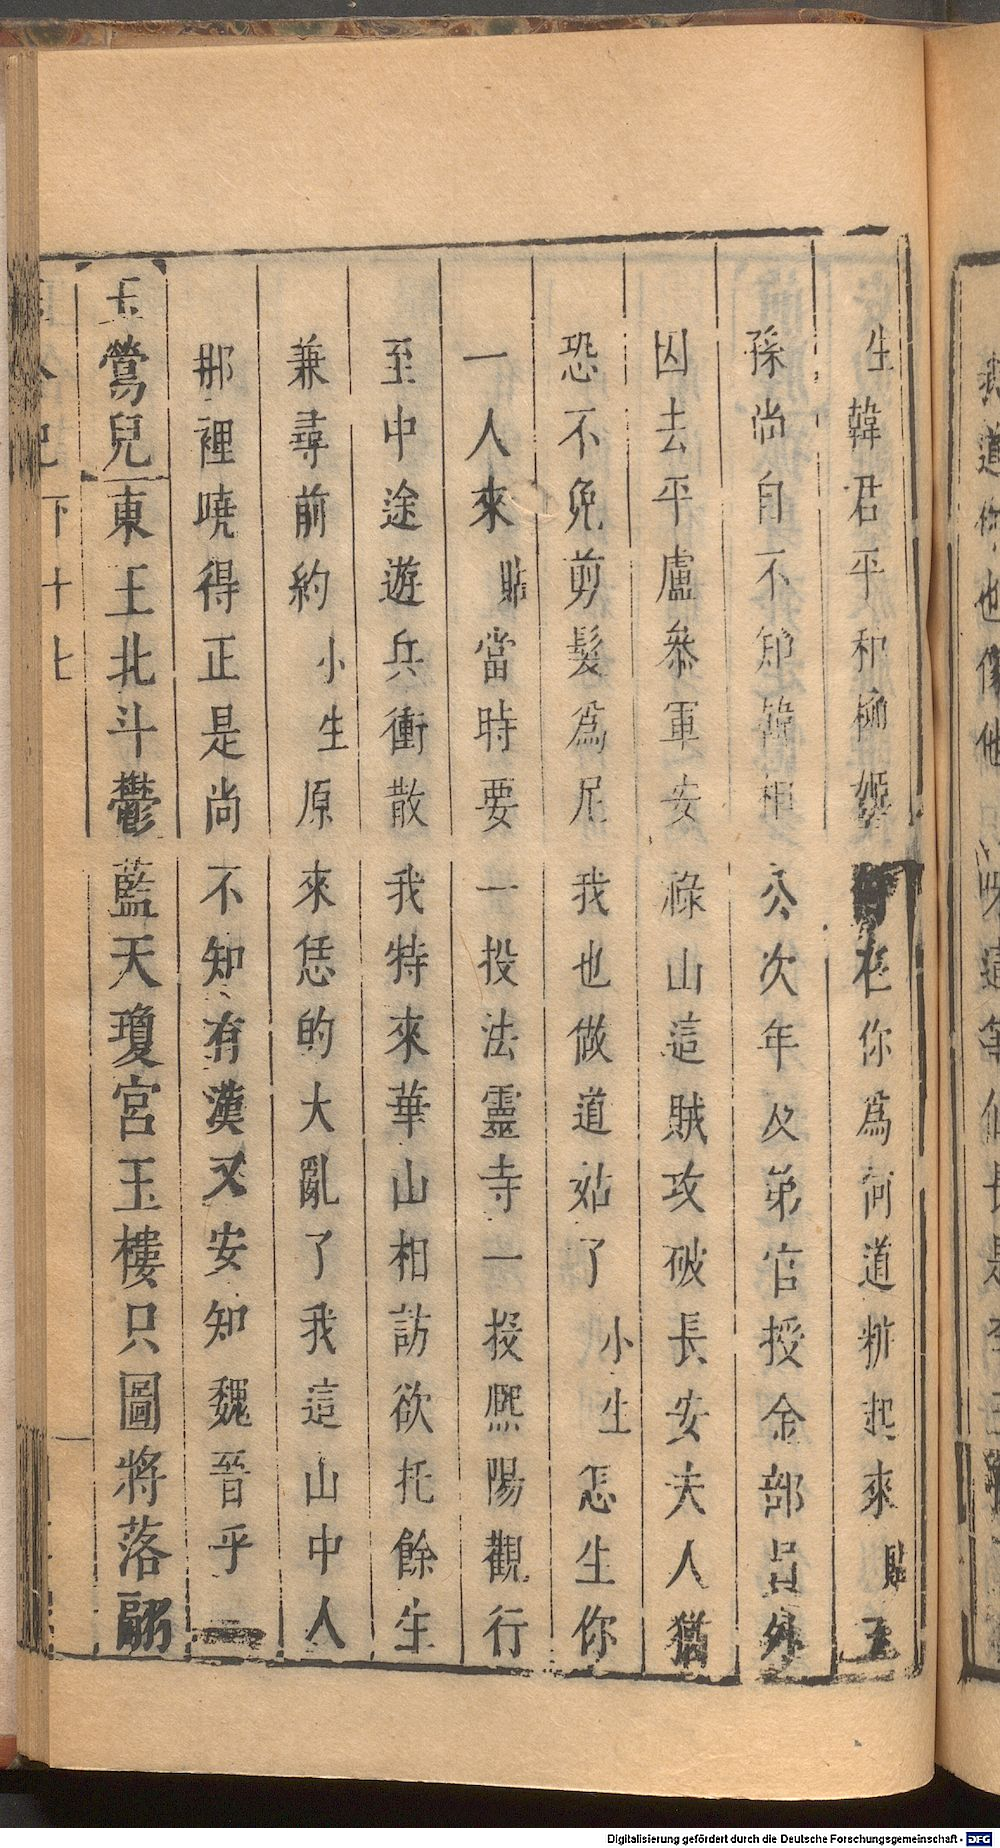 生韓君平和柳姬何在你爲何道粧起來貼王
孫尚自不知韓相公次年及第官授金部員外
因去平盧叅軍安祿山這賊攻破長安夫人猶
恐不免剪髮爲尼我也做道姑了小生怎生你
一人來貼當時要一投法靈寺一投熙陽觀行
至中途遊兵衝散我特來華山相訪欲托餘生
兼尋前約小生原來恁的大亂了我這山中人
那裡曉得正是尚不知有漢又安知魏晉乎
玉鶯兒東王北斗鬱藍天瓊宮玉樓只圖將落
記下十七
Digitalisierung gefördert durch die Deutsche Forschungsgemeinschaft - DFG